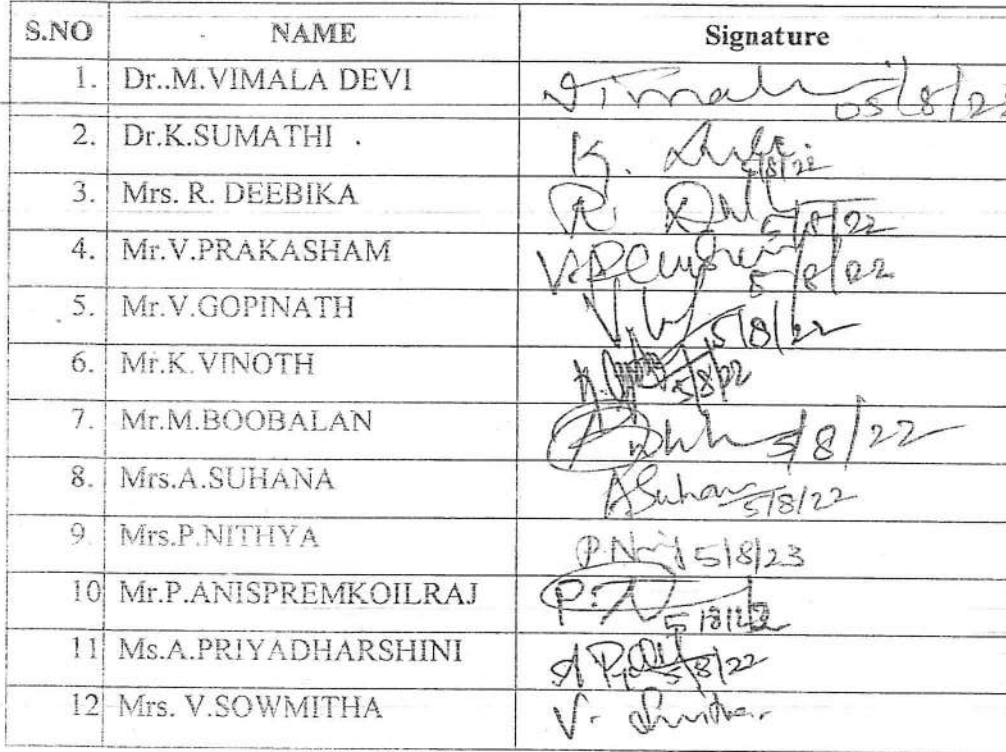 S.NO NAME Signature
1. Dr..M.VIMALA DEVI Vimala 05/8/22
2. Dr.K.SUMATHI . K. 5/8/22
3. Mrs. R. DEEBIKA R. 5/8/22
4. Mr.V.PRAKASHAM 5/8/22
5. Mr.V.GOPINATH 5/8/22
6. Mr.K.VINOTH 5/8/22
7. Mr.M.BOOBALAN 5/8/22
8. Mrs.A.SUHANA ASuhana 5/8/22
9. Mrs.P.NITHYA 5/8/23
10 Mr.P.ANISPREMKOILRAJ 5/8/22
11 Ms.A.PRIYADHARSHINI 5/8/22
12 Mrs. V.SOWMITHA V.